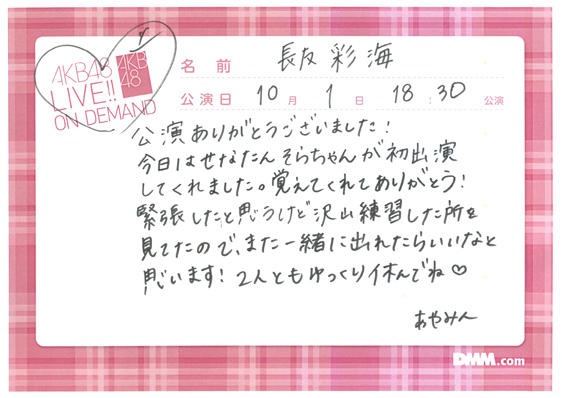 AKB48
LIVE!!
ON DEMAND
AKB
48
名 前 長友 彩海
公演日 10 月 1 日 18 : 30 公演
公演ありがとうございました!
今日はせなたん そらちゃんが初出演
してくれました。覚えてくれてありがとう!
緊張したと思うけど沢山練習した所を
見てたので、また一緒に出れたらいいなと
思います! 2人ともゆっくり休んでね♡
あやみん
DMM.com